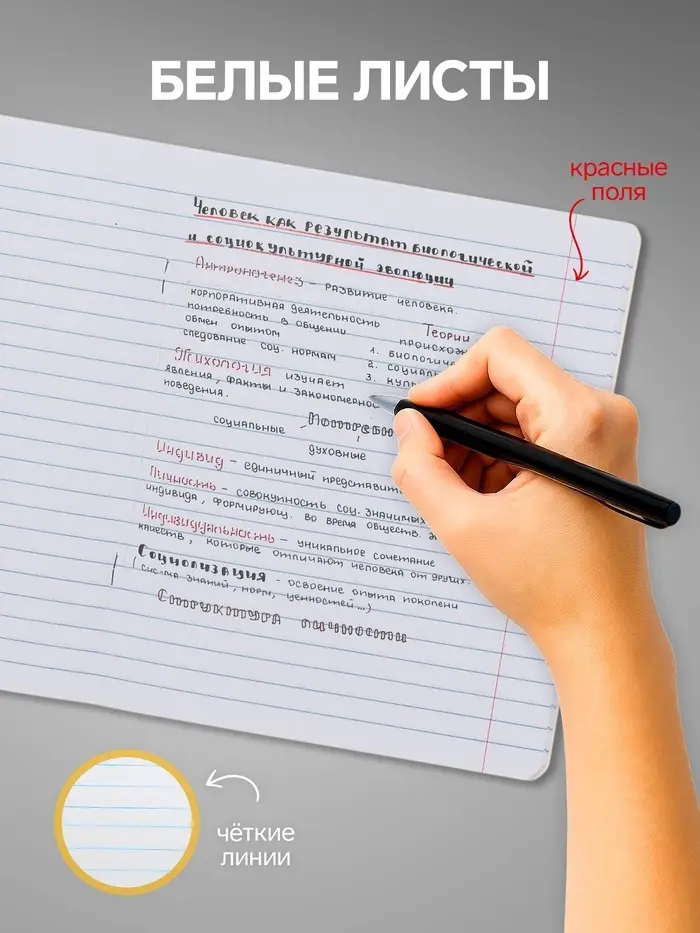 БЕЛЫЕ ЛИСТЫ
красные
поля
Человек как результат биологической
и социокультурной эволюции
Антропогенез – развитие человека.
корпоративная деятельность
потребность в общении
обмен опытом
следование соц. нормам
Теории
происхож
1. биологиче
2. социаль
3. куль
Психология изучает
явления, факты и закономернос
поведения.
Потребн
социальные
духовные
Индивид – единичный представит
Личность – совокупность соц. значимых
индивида, формирующ. во время обществ.
Индивидуальность – уникальное сочетание
качеств, которые отличают человека от других.
Социализация – освоение опыта поколени
(система знаний, норм, ценностей...)
Структура личности
чёткие
линии